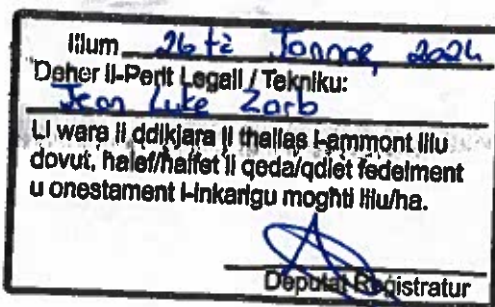 Illum 26 ta' Jannar, 2024
Deher il-Perit Legali / Tekniku:
Jean Luke Zarb
Li wara li ddikjara li tħallas l-ammont lilu
dovut, ħalef/ħalfet li qeda/qdiet fedelment
u onestament l-inkarigu mogħti lilu/ha.
Deputat Reġistratur